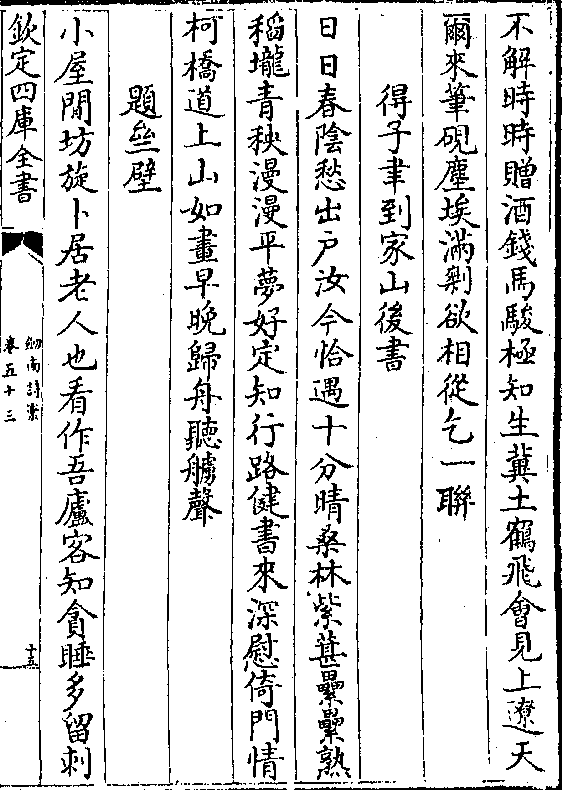 不解時時贈酒錢馬駿極知生冀土鶴飛會見上遼天
爾來筆硯塵埃滿剩欲相從乞一聯
得子聿到家山後書
日日春陰愁出戶汝今恰遇十分晴桑林紫葚纍纍熟
稻壠青秧漫漫平夢好定知行路健書來深慰倚門情
柯橋道上山如畫早晚歸舟聽艣聲
題壁
小屋閒坊旋卜居老人也看作吾廬客知貪睡多留刺
欽定四庫全書
劒南詩槀
卷五十三
十五